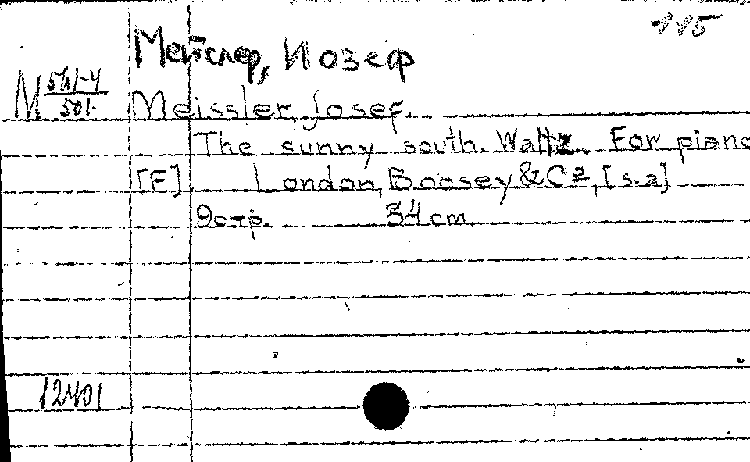 115
Мейслер, Иозеф
M 541-4/501
Meissler, Josef.
The sunny south. Waltz. For piano
[F]. London, Boosey & Cº, [s.a]
9 стр. 34 cm
12401